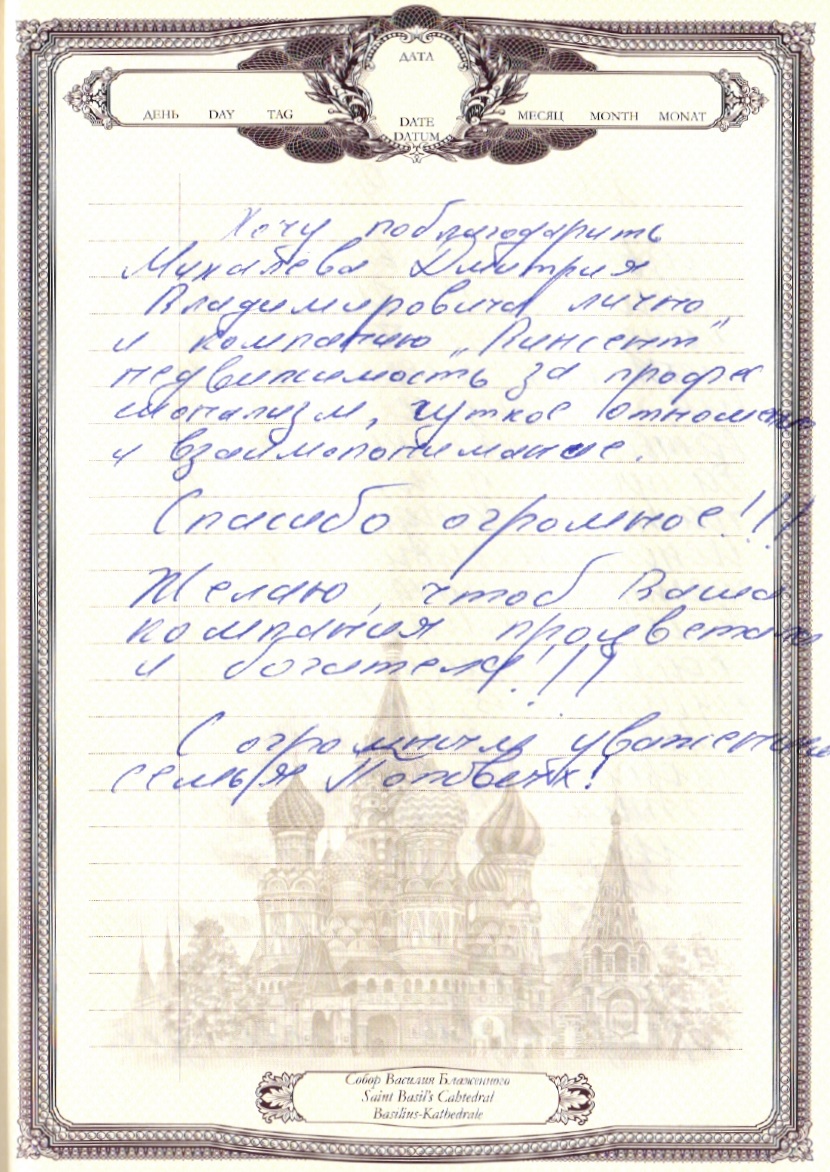 ДАТА
ДЕНЬ DAY TAG
DATE
DATUM
МЕСЯЦ MONTH MONAT
Хочу поблагодарить
Михалёва Дмитрия
Владимировича лично
и компанию „Винсент"
недвижимость за профес
сионализм, чуткое отношение
и взаимопонимание.
Спасибо огромное!!!
Желаю, чтоб Ваша
компания процветала
и богатела!!!
С огромным уважением
семья
Собор Василия Блаженного
Saint Basil's Cahtedral
Basilius-Kathedrale